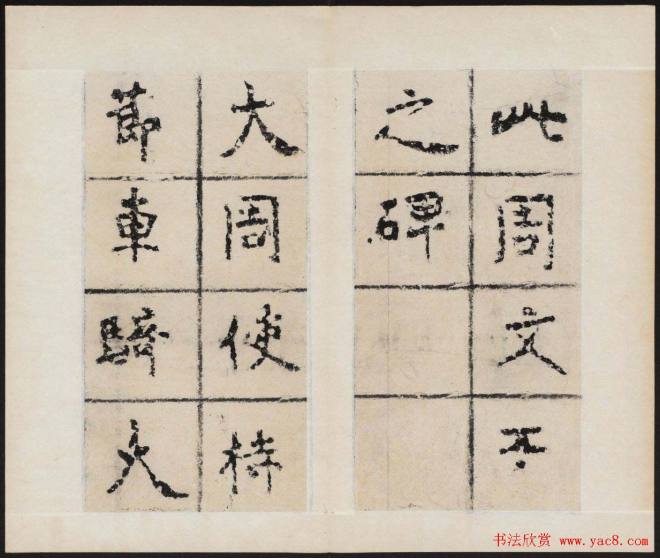 此周文王
之碑
大周使持
莭車騎大
书法欣赏 www.yac8.com